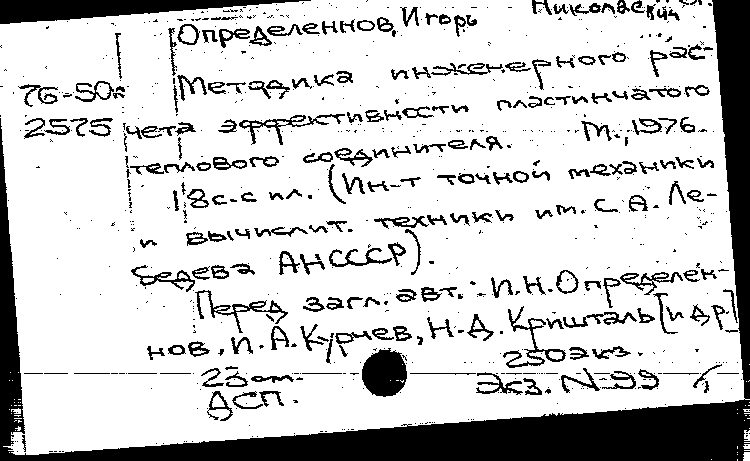 Определеннов, Игорь Николаевич
76-50к Методика инженерного рас-
2575 чета эффективности пластинчатого
теплового соединителя. М., 1976.
18с.с ил. (Ин-т точной механики
и вычислит. техники им. С. А. Ле-
бедева АНСССР).
Перед загл. авт.: И.Н.Определен-
нов, И.А.Курчев, Н.Д.Кришталь [и др]
250экз.
ДСП. Экз. N-99